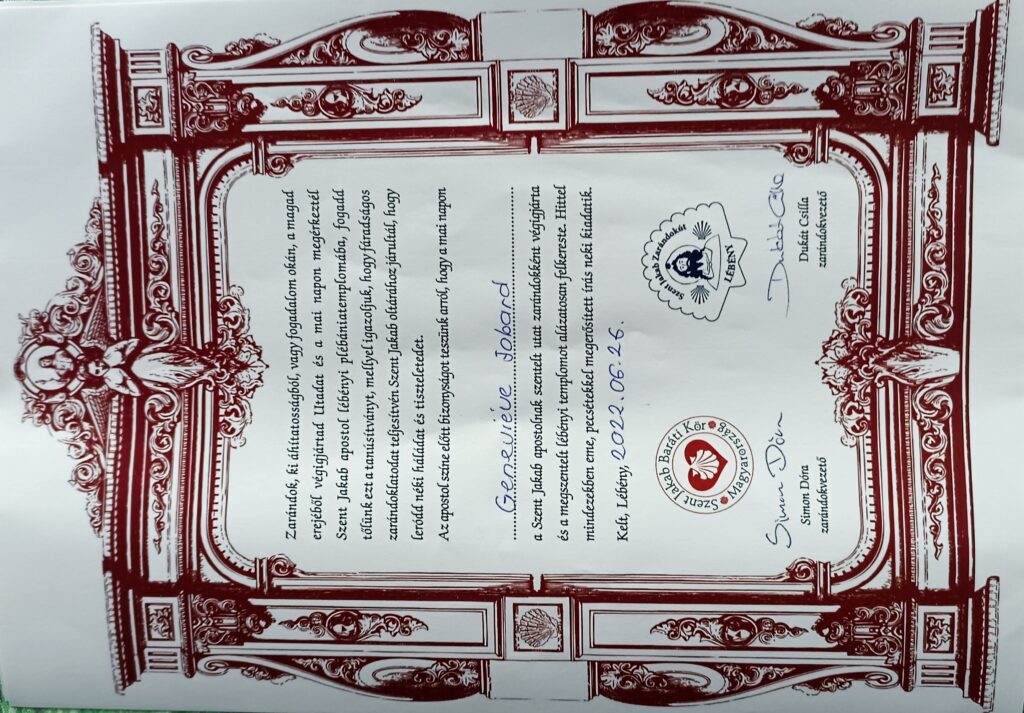 Zarándok, ki áhítatosságból, vagy fogadalom okán, a magad
erejéből végigjártad Utadat és a mai napon megérkeztél
Szent Jakab apostol lébényi plébániatemplomába, fogadd
tőlünk ezt a tanúsítványt, mellyel igazoljuk, hogy fáradságos
zarándoklatodat teljesítvén Szent Jakab oltárához járultál, hogy
leródd néki háládat és tiszteletedet.
Az apostol színe előtt bizonyságot teszünk arról, hogy a mai napon
Geneviéve Jobard
a Szent Jakab apostolnak szentelt utat zarándokként végigjárta
és a megszentelt lébényi templomot alázatosan felkereste. Hittel
mindezekben eme, pecsétekkel megerősített írás neki kiadatik.
Kelt, Lébény, 2022.06.26.
Szent Jakab Baráti Kör
Magyarország
Szent Jakab Zarándokút
LÉBÉNY
Simon Dóra
Dukát Csilla
Simon Dóra
Dukát Csilla
zarándokvezető
zarándokvezető